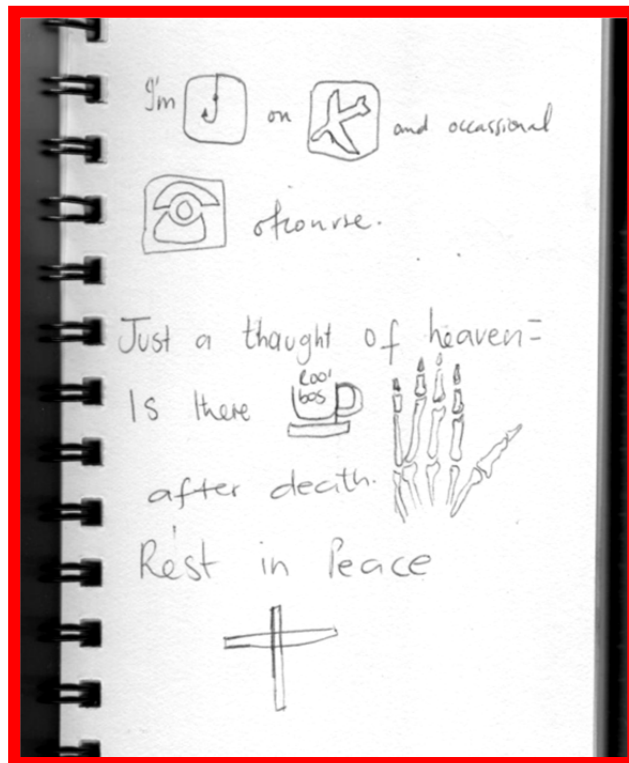 I'm on and occassional
ofcourse.
Just a thaught of heaven=
Rooi
bos
Is there
after death.
Rest in Peace